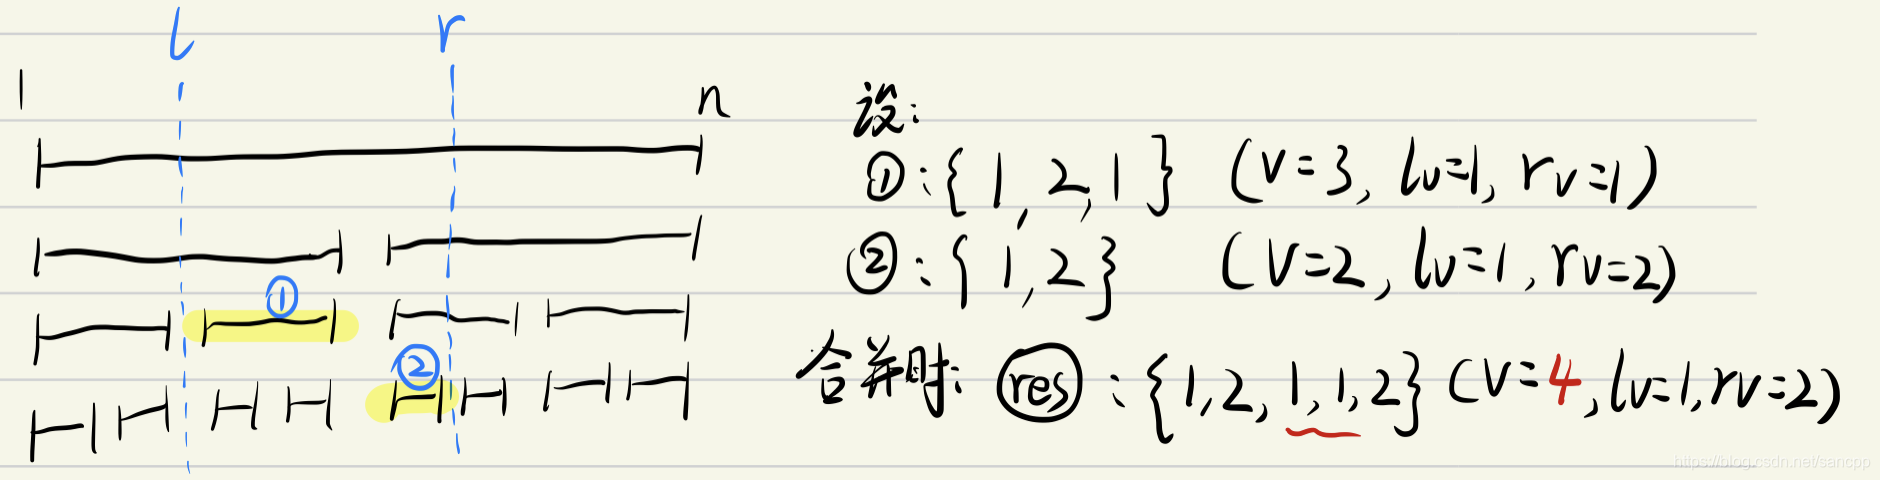 l r
1 n
①
②
设:
①:{1,2,1} (v=3, lv=1, rv=1)
②:{1,2} (v=2, lv=1, rv=2)
合并时: res:{1,2,1,1,2} (v=4, lv=1, rv=2)
https://blog.csdn.net/sancpp